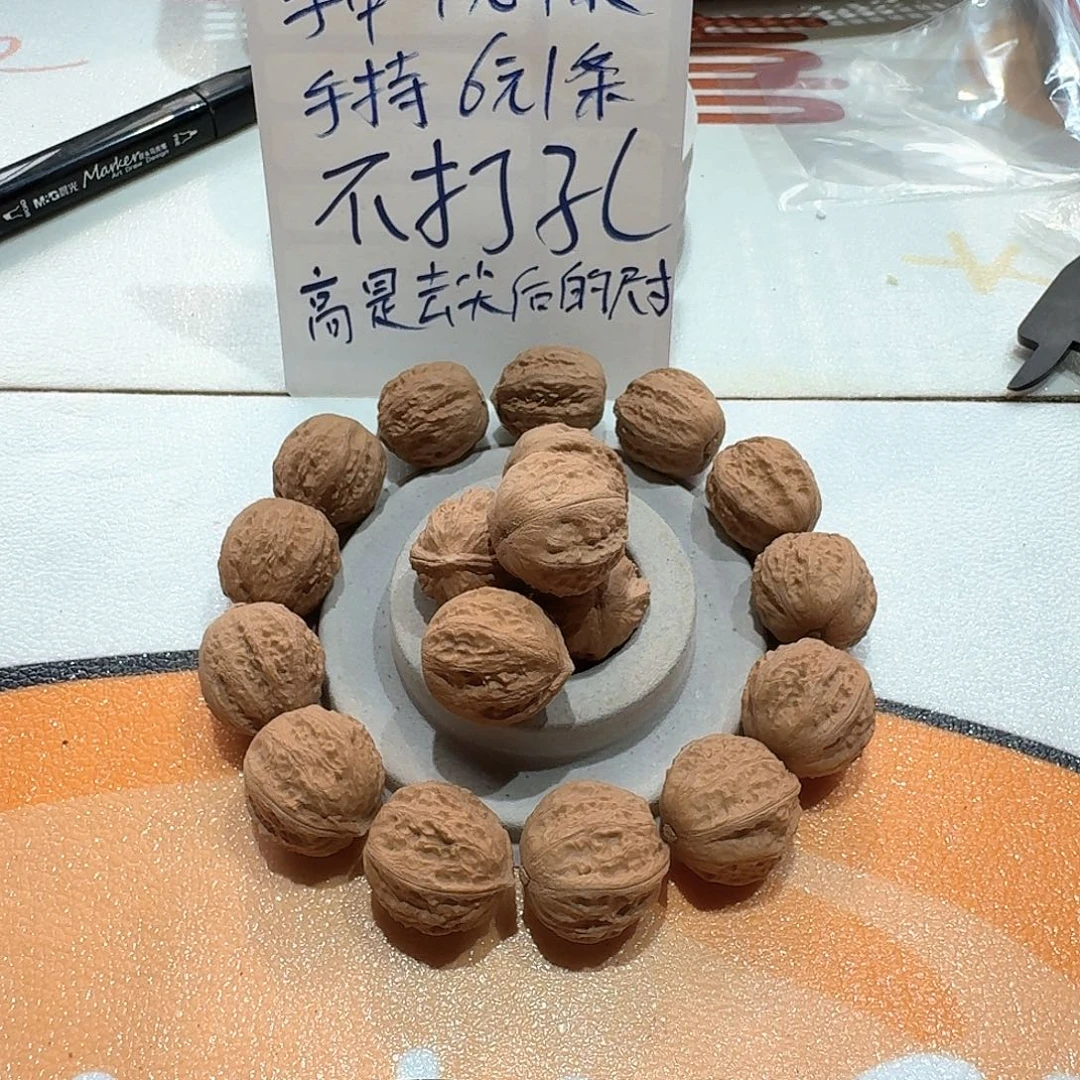 手持 6元1条
不打孔
高是去尖后的尺寸
M&G晨光 Marker
Art Draw Design